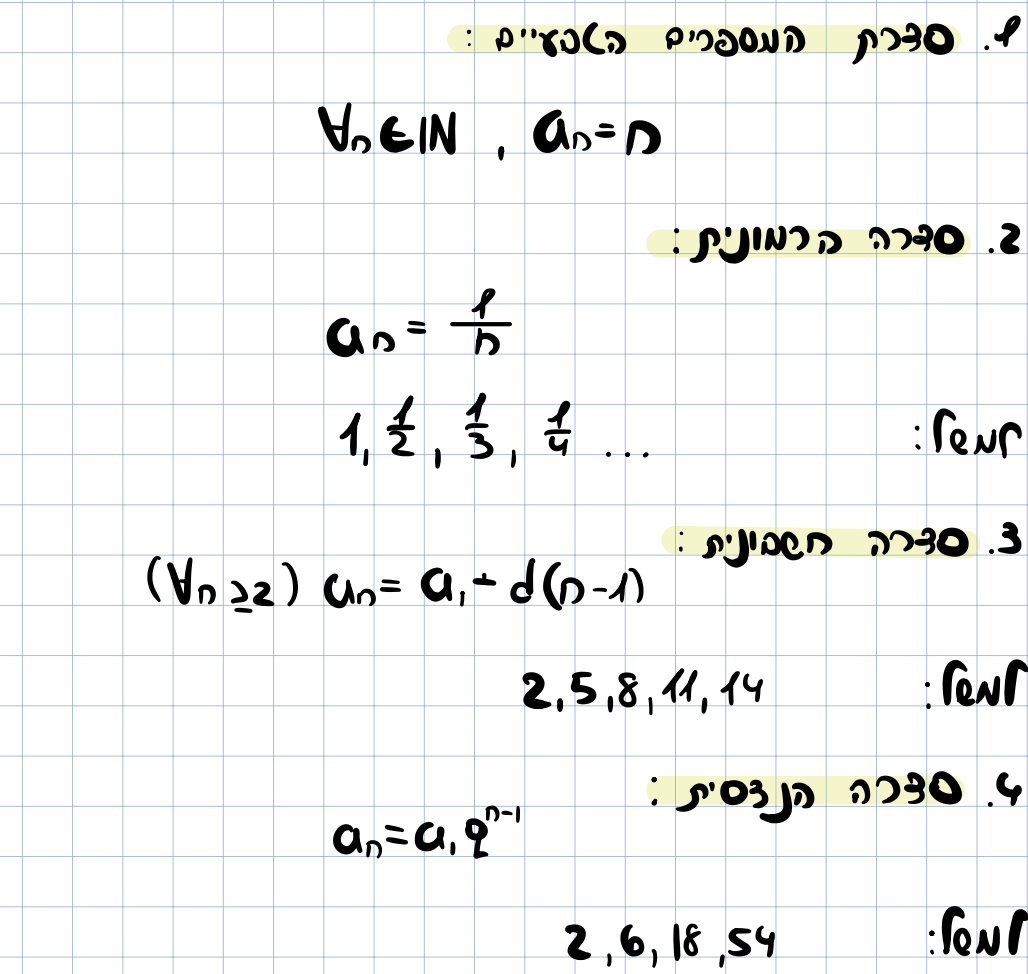 1. סדרת המספרים הטבעיים :
∀n∈ℕ , aₙ=n
2. סדרה הרמונית :
aₙ = 1/n
למשל: 1, 1/2, 1/3, 1/4 ...
3. סדרה חשבונית :
(∀n≥2) aₙ = a₁+d(n-1)
למשל: 2,5,8,11,14
4. סדרה הנדסית :
aₙ=a₁qⁿ⁻¹
למשל: 2,6,18,54